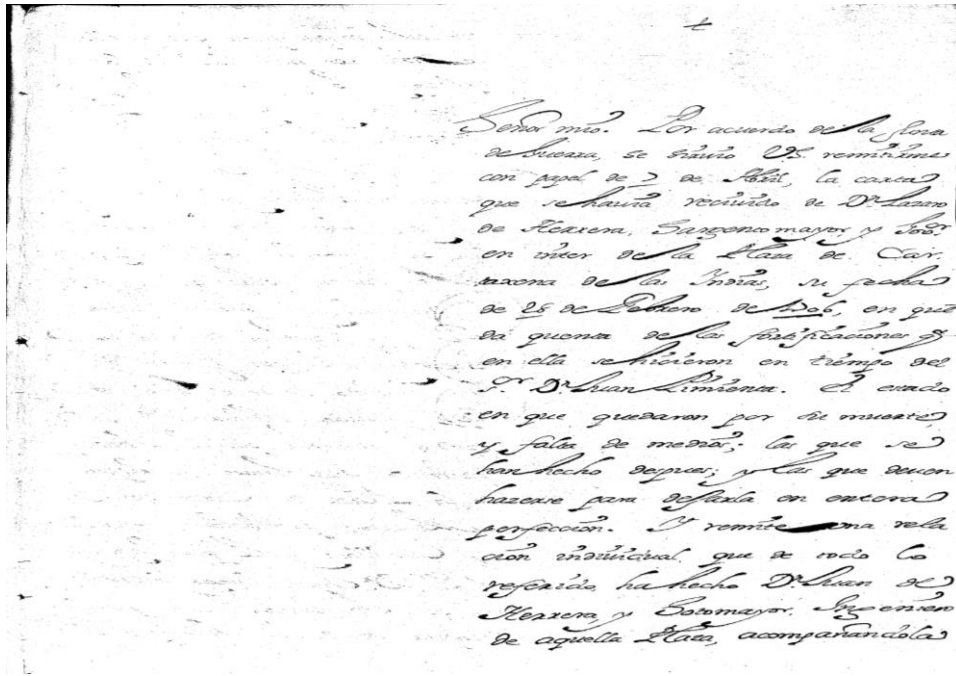 Señor mio. Por acuerdo de la Junta
de Guerra, se sirvio VS. remitirme
con papel de 7 de Abril, la carta
que se havia recivido de Dn. Lazaro
de Herrera, Sargento mayor, y Govor.
en inter de la Plaza de Car-
taxena de las Indias, su fecha
de 28 de Febrero de 1706, en que
da quenta de las fortificaciones q
en ella se hicieron en tiempo del
Sr. Dn. Juan Pimienta. El estado
en que quedaron por su muerte,
y falta de medios; las que se
han hecho despues; y las que deven
hazerse para dejarla en entera
perfeccion. Y remite una rela
cion individual, que de todo lo
referido, ha hecho Dn. Juan de
Herrera, y Sotomayor. Ingeniero
de aquella Plaza, acompañandola